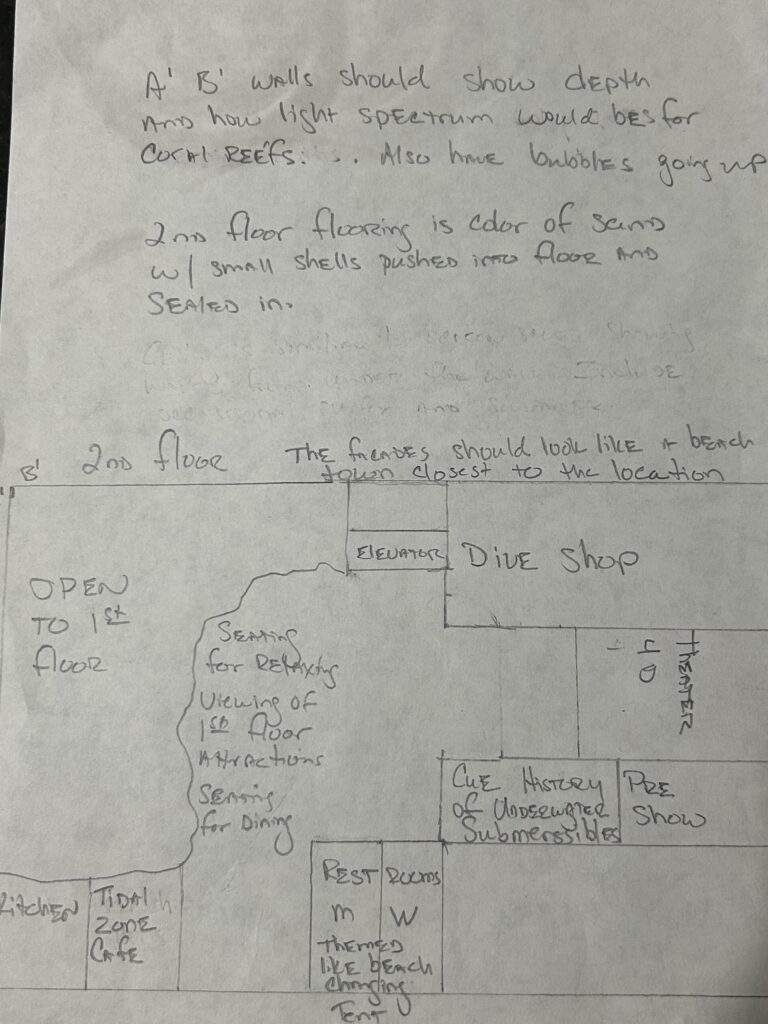 A' B' walls should show depth
AND how light spectrum would bes for
CORAL REEFS. . . Also have bubbles going up
2nd floor flooring is color of sand
w/ small shells pushed into floor AND
SEALED in.
Include
AND
The facades should look like a beach
B' 2nd floor
town closest to the location
ELEVATOR
DIVE Shop
OPEN
TO 1st
floor
SEATING
for RELAXING
Viewing of
1st floor
Attractions
SEATING
for Dining
4D
THEATER
CUE HISTORY
of Underwater
Submerssibles
PRE
Show
Kitchen
TIDAL
ZONE
CAFE
REST ROOMS
M W
THEMED
like beach
changing
Tent